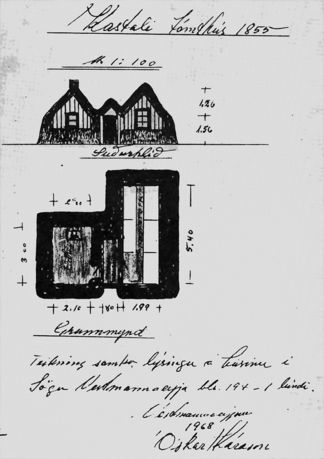 Kastali tómthús 1855
M 1:100
1.20
1.50
Suðurhlið
2.00
3.00
5.40
2.10
80
1.89
Grunnmynd
Teikning samkv. lýsingu á húsinu í
Sögu Vestmannaeyja bls. 194 - 1 bindi.
Vestmannaeyjum
1968
Óskar Kárason